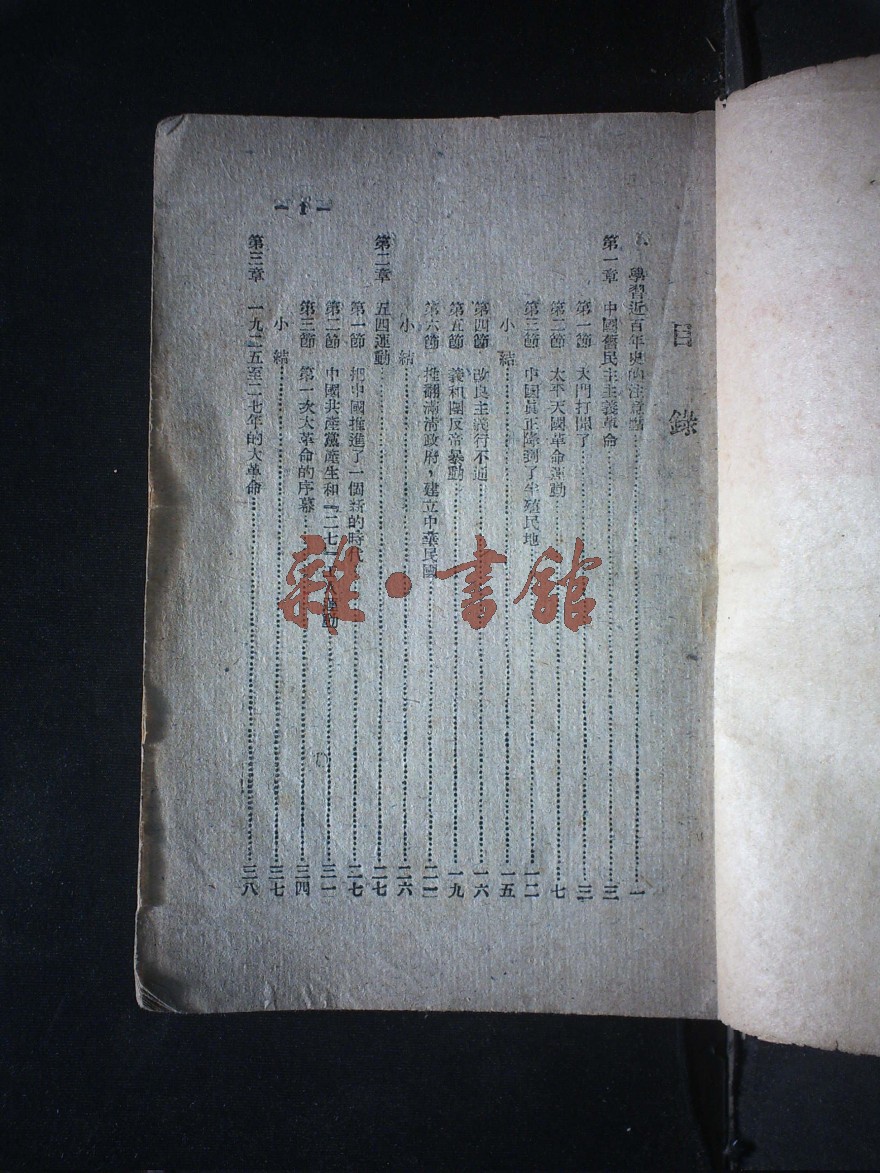 目錄
學習近百年史的注意點……一
第一章 中國舊民主主義革命……三
第一節 大門打開了……三
第二節 太平天國革命運動……七
第三節 中國眞正降到了半殖民地……一二
小結……一五
第四節 改良主義行不通……一六
第五節 義和團反帝暴動……一九
第六節 推翻滿淸政府,建立中華民國……二一
小結……二六
第二章 五四運動……二七
第一節 把中國推進了一個新的時代……二七
第二節 中國共產黨產生和『二七』工人運動……三一
第三節 第一次大革命的序幕……三四
小結……三七
第三章 一九二五至二七年的大革命……三八
— 1 —
雜·書館